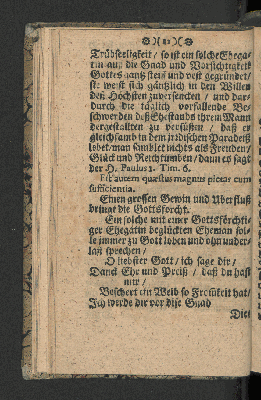 )( 11 )(
Trübseeligkeit / so ist ein solche Ehega-
tin auf die Gnad und Vorsichtigkeit
Gottes gantz steiff und vest gegründet /
sie weist sich gäntzlich in den Willen
deß Höchsten zuversencken / und dar-
durch die täglich vorfallende Be-
schwerden deß Ehestands ihrem Mann
dergestallten zu versüssen / daß er
gleichsamb in dem irrdischen Paradeiß
lebet / man samblet nichts als Freuden /
Glück und Reichtumben / dann es sagt
der H. Paulus 1. Tim. 6.
Est autem quæstus magnus pietas cum
sufficientia.
Einen grossen Gewin und Uberfluß
bringt die Gottsforcht.
Ein solche mit einer Gottsförchti-
ger Ehegatin beglückten Eheman sol-
le immer zu Gott loben und ohn under-
laß sprechen /
O liebster Gott / ich sage dir /
Danck Ehr und Preiß / daß du hast
mir /
Beschert ein Weib so Fromkeit hat /
Ich werde dir vor dise Gnad
Die